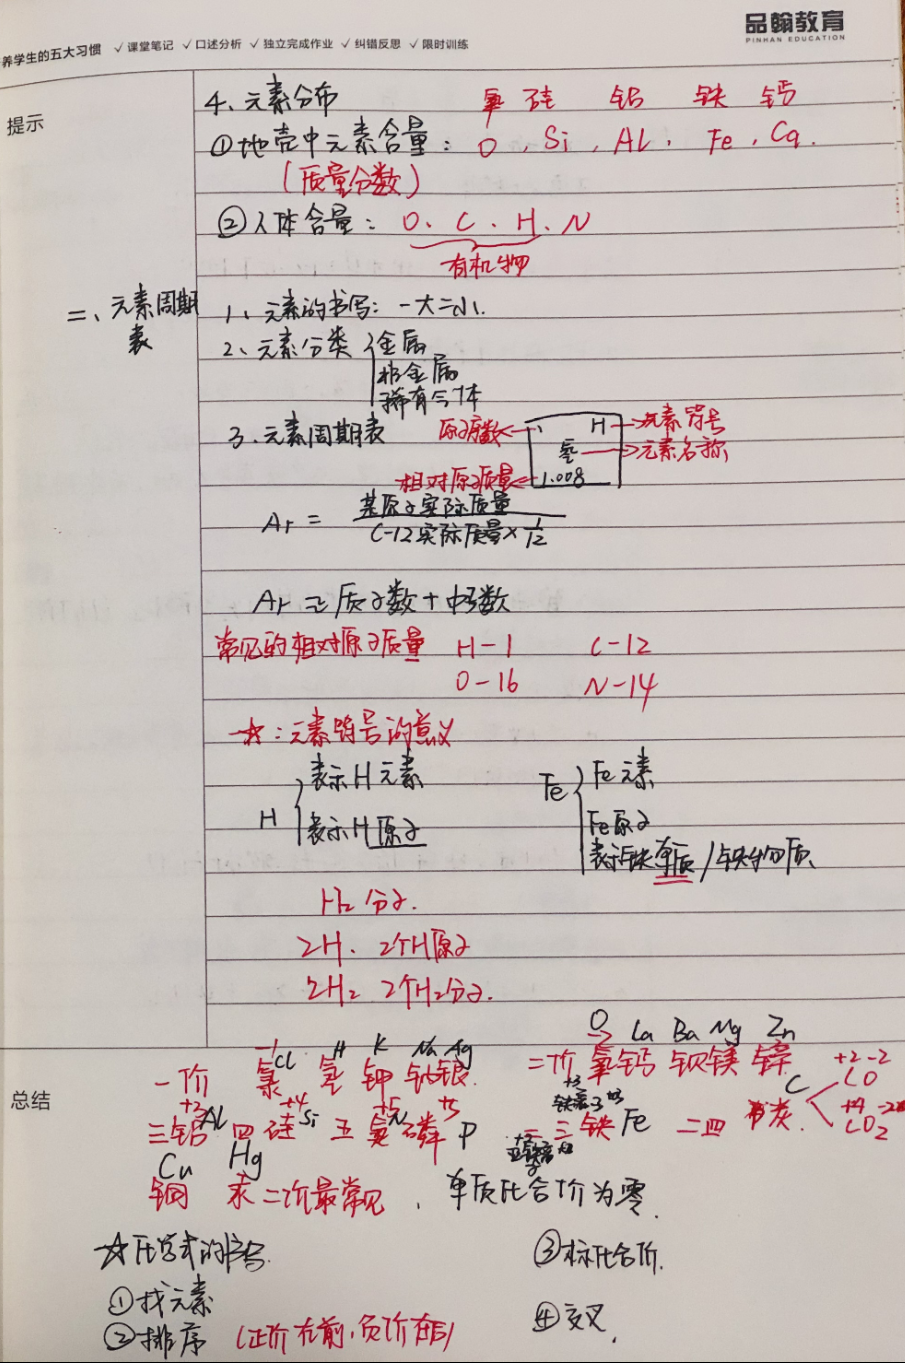 品翰教育
PINHAN EDUCATION
养学生的五大习惯 ✓课堂笔记 ✓口述分析 ✓独立完成作业 ✓纠错反思 ✓限时训练
提示
4、元素分布 氧 硅 铝 铁 钙
①地壳中元素含量: O、Si、Al、Fe、Ca.
(质量分数)
②人体含量: O、C、H、N
有机物
二、元素周期表
1、元素的书写: 一大二小.
2、元素分类 { 金属
非金属
稀有气体
3、元素周期表
原子序数 1 H 元素符号
氢 元素名称
相对原子质量 1.008
Ar = 某原子实际质量
C-12实际质量×1/12
Ar ≈ 质子数+中子数
常见的相对原子质量 H-1 C-12
O-16 N-14
☆:元素符号的意义
H { 表示H元素
表示H原子
Fe { Fe元素
Fe原子
表示铁单质/铁物质
H₂分子.
2H、2个H原子
2H₂ 2个H₂分子.
总结
-1 Cl H K Na Ag
一价 氯 氢 钾 钠银
O Ca Ba Mg Zn
二价 氧钙 钡镁 锌
+3 Al +4 Si +5 N +5 P
三铝 四硅 五氮磷
+3
二三铁 Fe
二四 碳 C
+2 -2
CO
+4 -2
CO₂
Cu Hg
铜 汞二价最常见, 单质化合价为零.
☆化学式的书写.
①找元素
②排序 (正价在前,负价在后)
③标化合价.
④交叉.